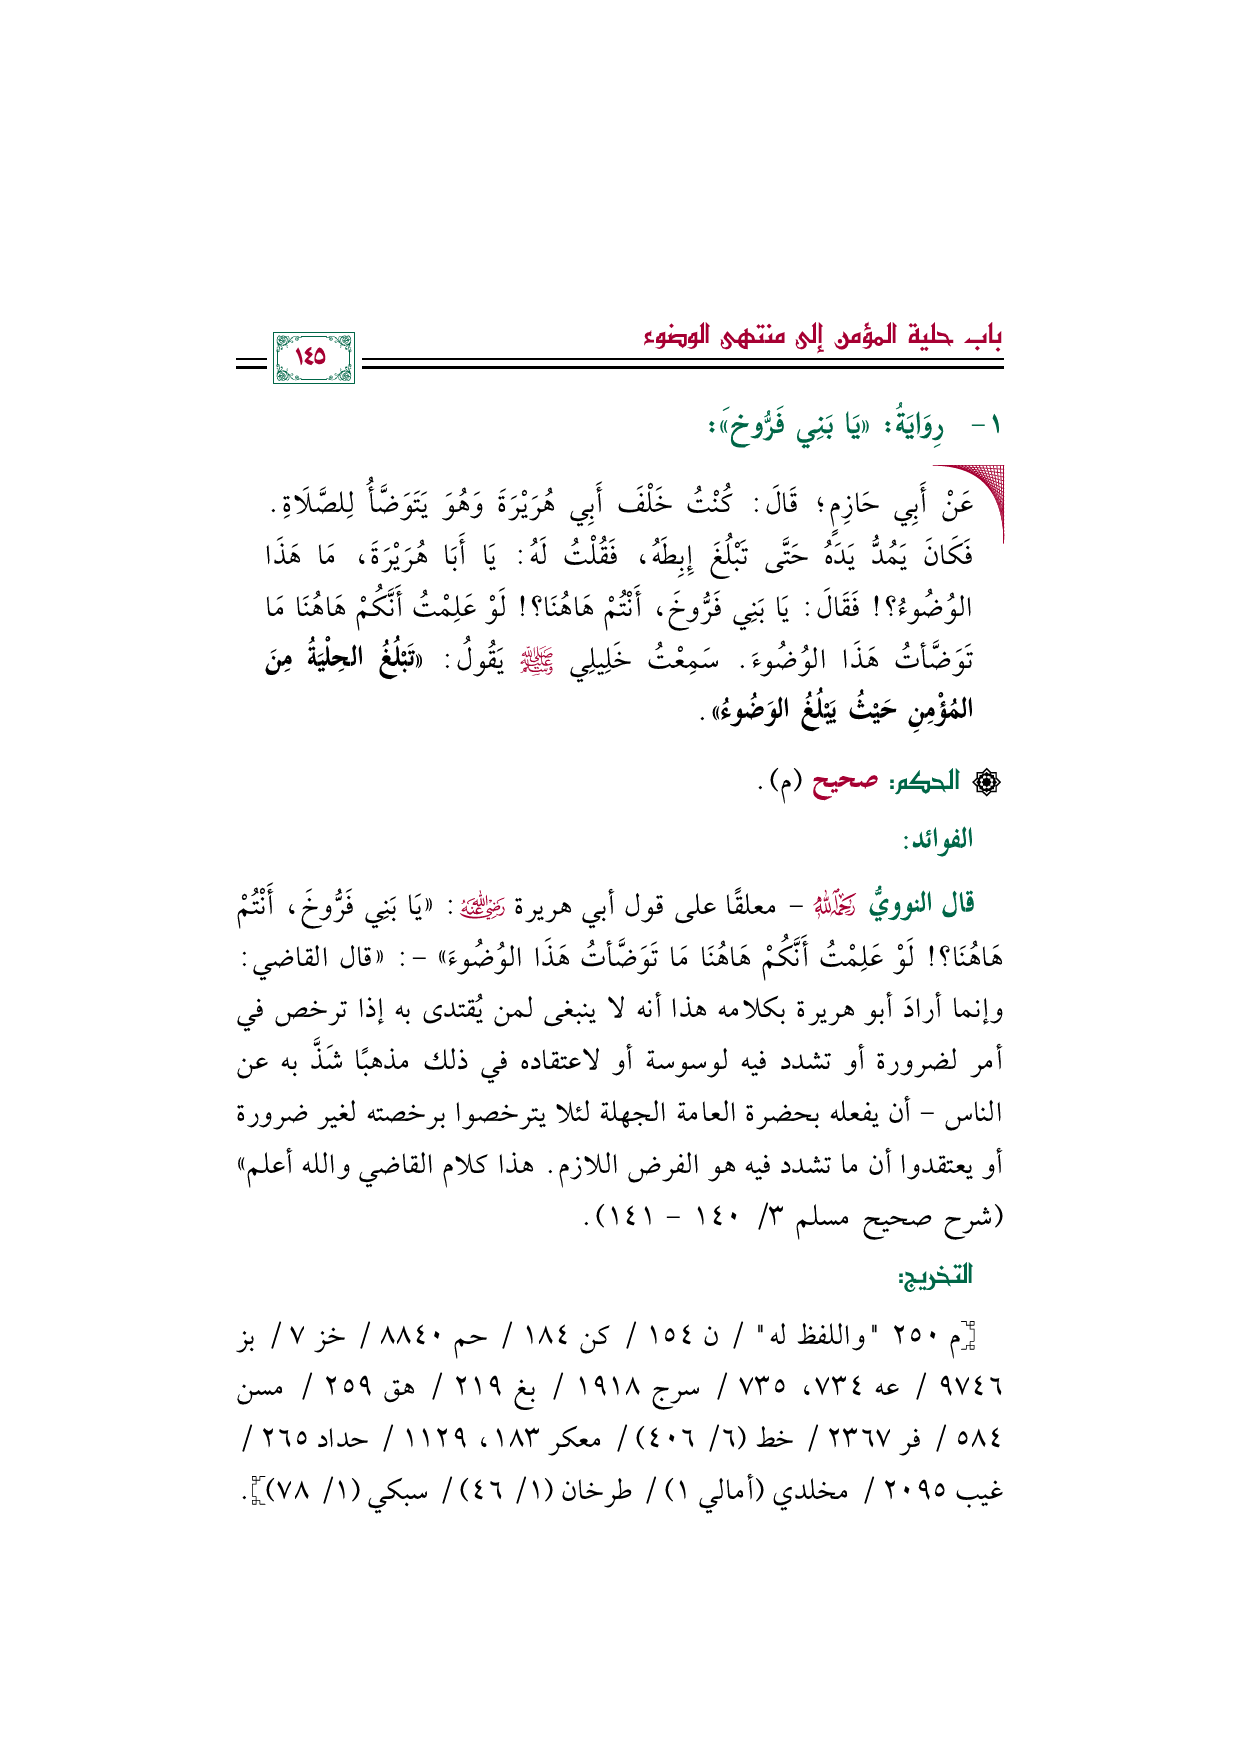 باب حلية المؤمن إلى منتهى الوضوء
١٤٥
١- رِوَايَةُ: «يَا بَنِي فَرُّوخَ»:
عَنْ أَبِي حَازِمٍ؛ قَالَ: كُنْتُ خَلْفَ أَبِي هُرَيْرَةَ وَهُوَ يَتَوَضَّأُ لِلصَّلَاةِ.
فَكَانَ يَمُدُّ يَدَهُ حَتَّى تَبْلُغَ إِبِطَهُ، فَقُلْتُ لَهُ: يَا أَبَا هُرَيْرَةَ، مَا هَذَا
الوُضُوءُ؟! فَقَالَ: يَا بَنِي فَرُّوخَ، أَنْتُمْ هَاهُنَا؟! لَوْ عَلِمْتُ أَنَّكُمْ هَاهُنَا مَا
تَوَضَّأتُ هَذَا الوُضُوءَ. سَمِعْتُ خَلِيلِي ﷺ يَقُولُ: «تَبْلُغُ الحِلْيَةُ مِنَ
المُؤْمِنِ حَيْثُ يَبْلُغُ الوَضُوءُ».
الحكم: صحيح (م).
الفوائد:
قال النوويُّ رحمه الله - معلقًا على قول أبي هريرة رضي الله عنه: «يَا بَنِي فَرُّوخَ، أَنْتُمْ
هَاهُنَا؟! لَوْ عَلِمْتُ أَنَّكُمْ هَاهُنَا مَا تَوَضَّأتُ هَذَا الوُضُوءَ» -: «قال القاضي:
وإنما أرادَ أبو هريرة بكلامه هذا أنه لا ينبغى لمن يُقتدى به إذا ترخص في
أمر لضرورة أو تشدد فيه لوسوسة أو لاعتقاده في ذلك مذهبًا شَذَّ به عن
الناس - أن يفعله بحضرة العامة الجهلة لئلا يترخصوا برخصته لغير ضرورة
أو يعتقدوا أن ما تشدد فيه هو الفرض اللازم. هذا كلام القاضي والله أعلم»
(شرح صحيح مسلم ٣/ ١٤٠ - ١٤١).
التخريج:
[م ٢٥٠ "واللفظ له" / ن ١٥٤ / كن ١٨٤ / حم ٨٨٤٠ / خز ٧ / بز
٩٧٤٦ / عه ٧٣٤، ٧٣٥ / سرج ١٩١٨ / بغ ٢١٩ / هق ٢٥٩ / مسن
٥٨٤ / فر ٢٣٦٧ / خط (٦/ ٤٠٦) / معكر ١٨٣، ١١٢٩ / حداد ٢٦٥ /
غيب ٢٠٩٥ / مخلدي (أمالي ١) / طرخان (١/ ٤٦) / سبكي (١/ ٧٨)].